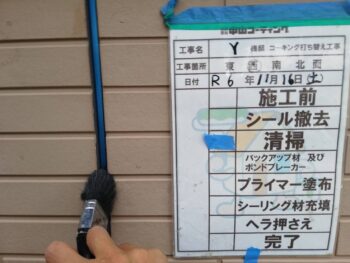 中山コーティング
工事名 Y 様邸 コーキング打ち替え工事
工事箇所 東西南北面
日付 R6年11月16日(土)
施工前
シール撤去
清掃
バックアップ材 及び
ボンドブレーカー
プライマー塗布
シーリング材充填
ヘラ押さえ
完了